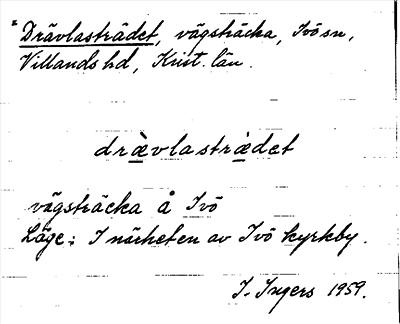 Drävlasträdet, vägsträcka, Ivö sn,
Villands hd, Krist. län.
drævlastrædet
vägsträcka å Ivö
Läge: I närheten av Ivö kyrkby.
I. Ingers 1959.